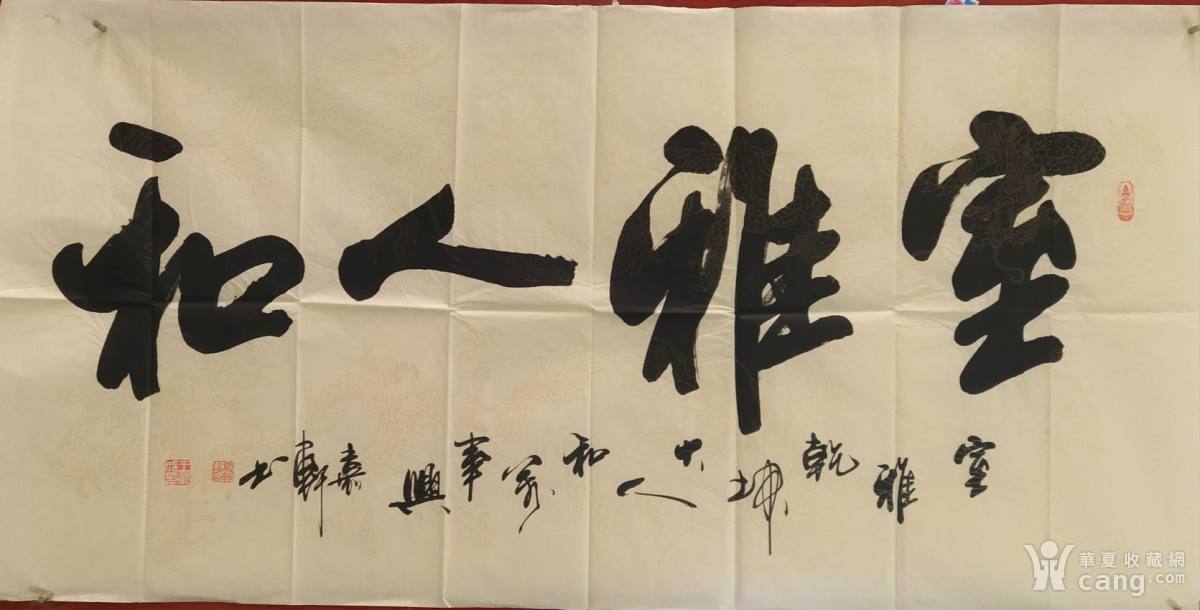 室雅人和
室雅乾坤大人和家事興嘉軒书
華夏收藏網
cang.com